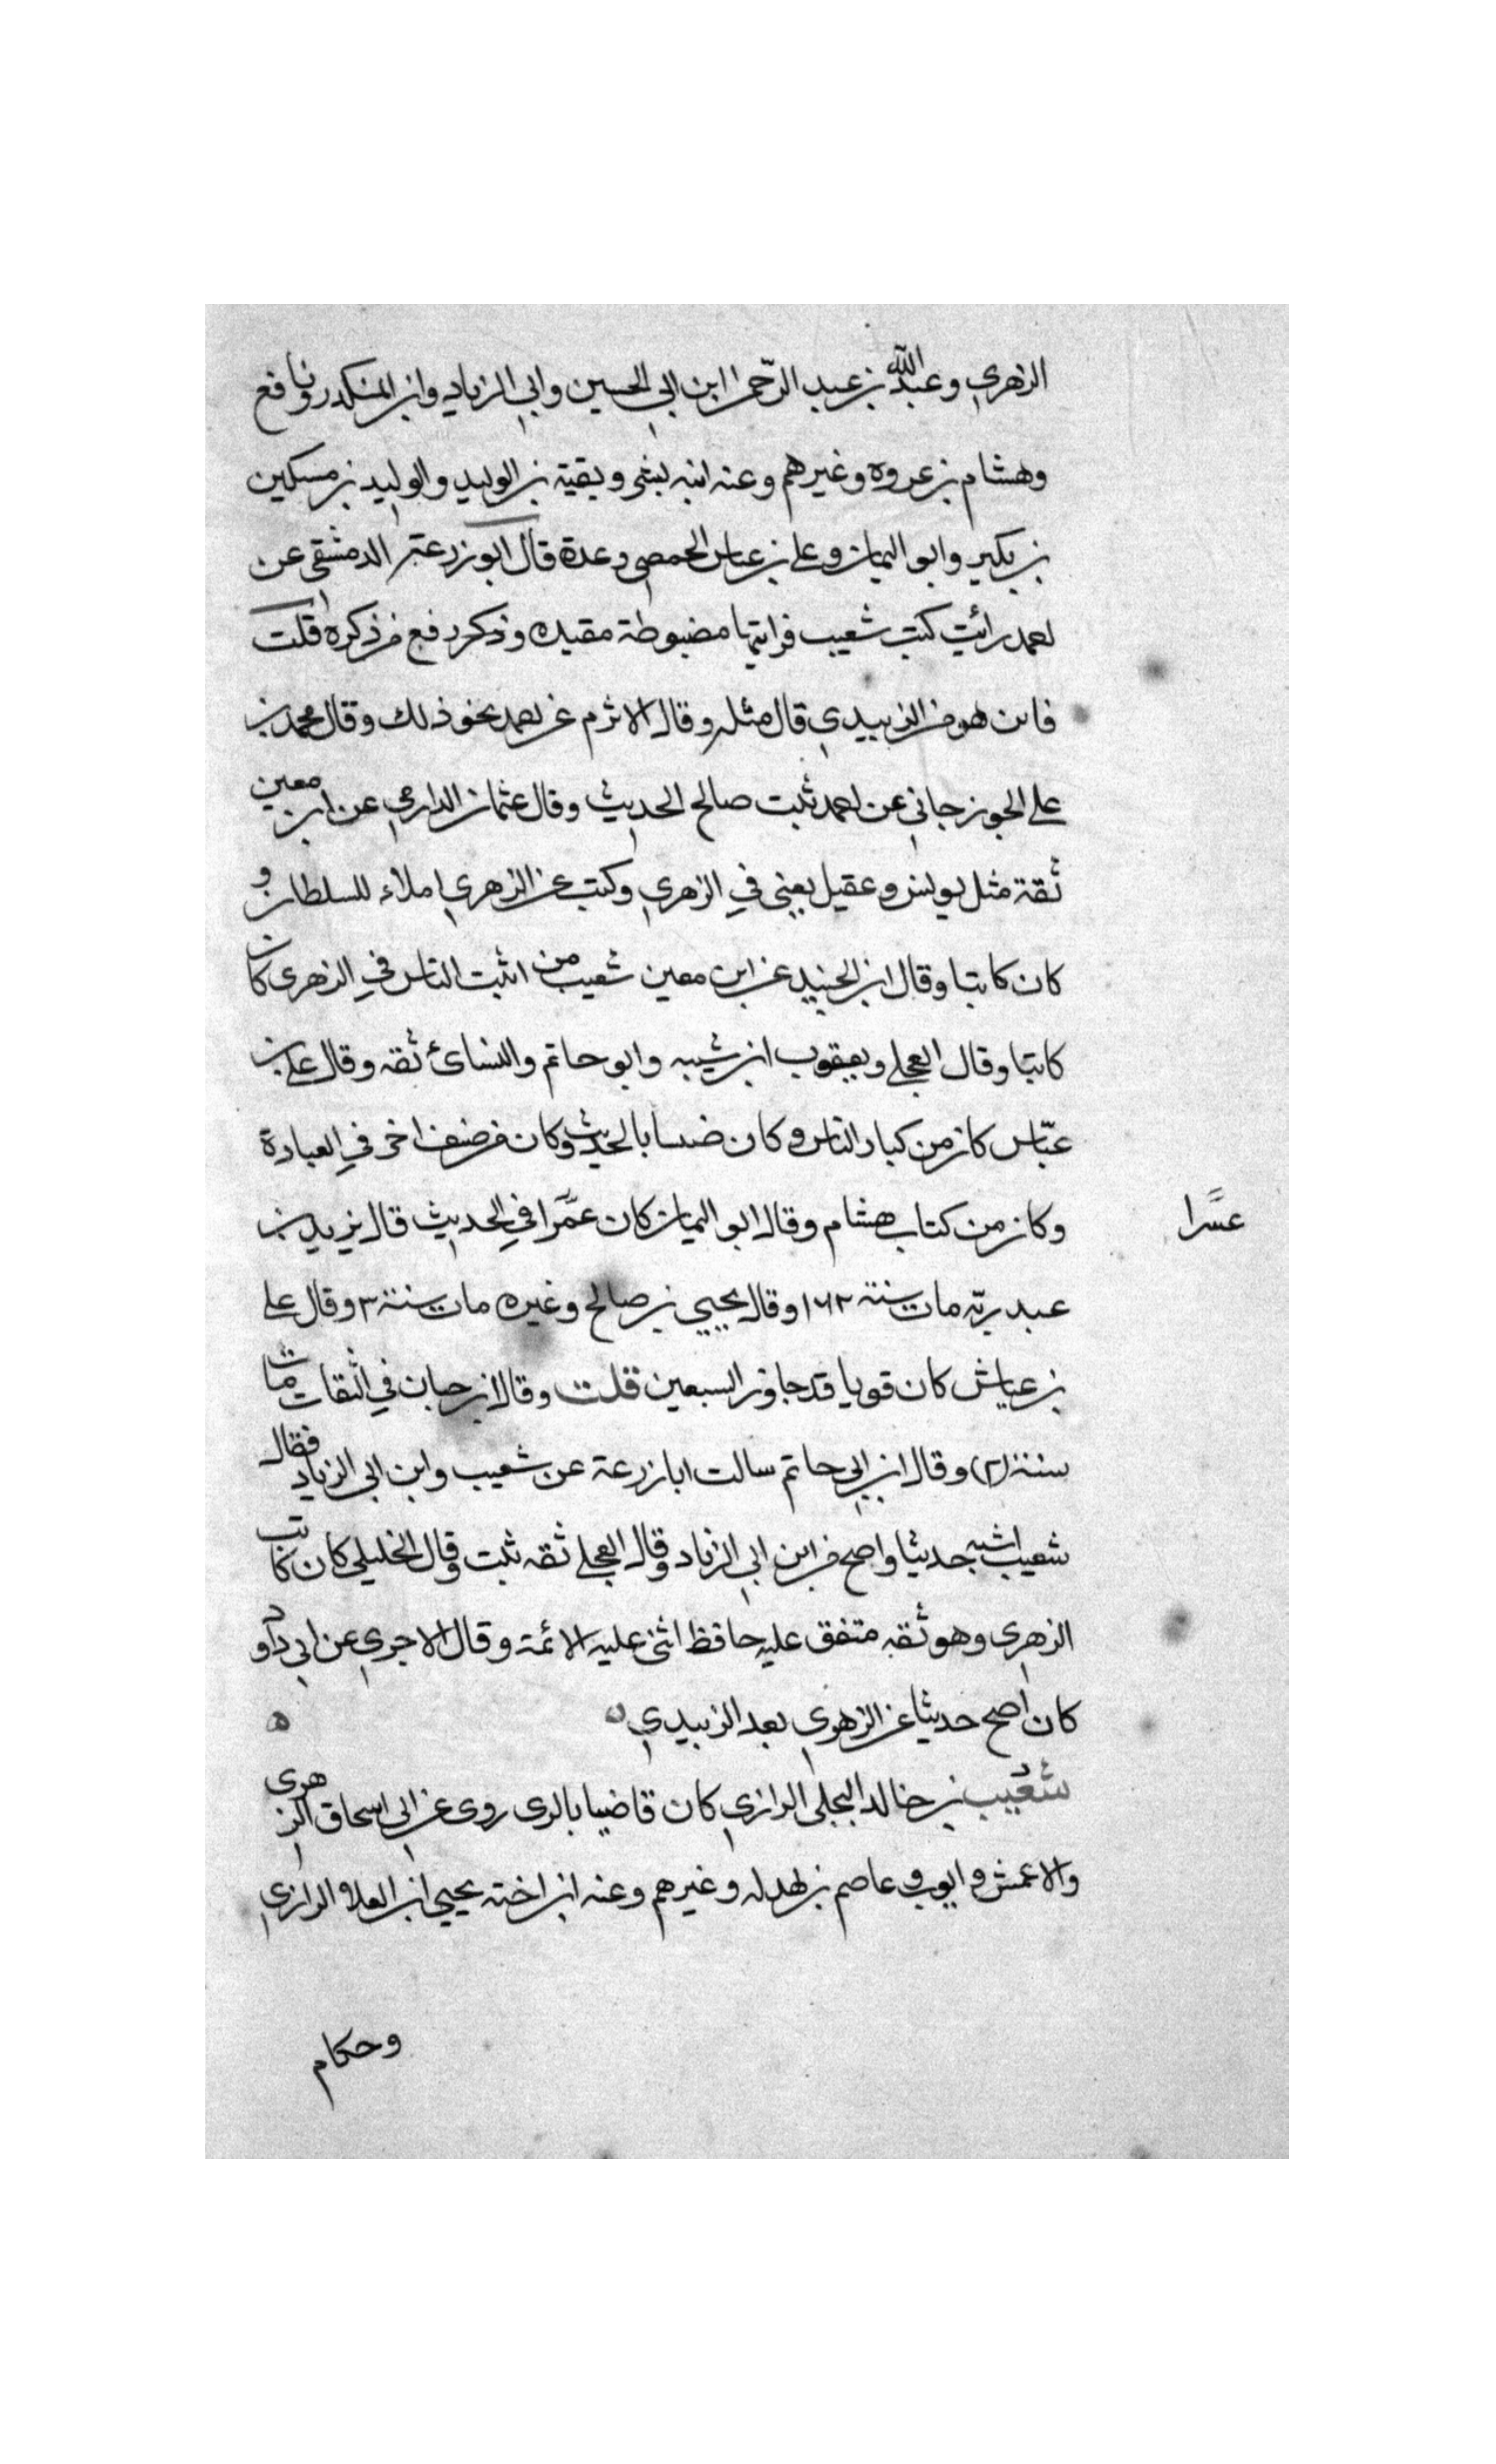 الزهري وعبدالله بن عبد الرحمن ابن ابي الحسين وابي الزناد وابن المنكدر ونافع
وهشام بن عروه وغيرهم وعنه ابنه بشر وبقية بن الوليد والوليد بن مسكين
بن بكير وابو اليمان وعلي بن عباس الحمصي وعدة قال ابو زرعة الدمشقي عن
احمد رائيت كتب شعيب فرايتها مضبوطة مقيده وذكر رفع من ذكره قلت
فاين هو من الزبيدي قال مثله وقال الاثرم عن احمد نحو ذلك وقال محمد بن
علي الجوزجاني عن احمد ثبت صالح الحديث وقال عثمان الدارمي عن ابن معين
ثقة مثل يونس وعقيل يعني في الزهري وكتب عن الزهري املاء للسلطان و
كان كاتبا وقال ابن الجنيد عن ابن معين شعيب من اثبت الناس في الزهري كان
كاتبا وقال العجلي ويعقوب ابن شيبه وابو حاتم والنسائ ثقه وقال علي بن
عباس كان من كبار الناس وكان بالحديث وكان من صنف اخر في العبادة
وكان من كتاب هشام وقال ابو اليمان كان عمرا في الحديث قال يزيد بن
عسرا
عبد ربه مات سنة ١٦٢ وقال يحيي بن صالح وغيره مات سنة ٣ وقال علي
بن عياش كان قويا قد جاوز السبعين قلت وقال ابن حبان في الثقات مات
سنة (٢) وقال ابن ابي حاتم سالت ابا زرعة عن شعيب وابن ابي الزناد فقال
شعيب اشبه حديثا واصح من ابن ابي الزناد وقال العجلي ثقه ثبت وقال الخليلي كان كاتب
الزهري وهو ثقه متفق عليه حافظ اثنى عليه الائمة وقال الاجري عن ابي داود
كان اصح حديثا عن الزهري بعد الزبيدي ه ه
شعيب بن خالد البجلي الرازي كان قاضيا بالري روى عن ابي اسحاق الزهري
والاعمش و ايوب و عاصم بن بهدله وغيرهم وعنه ابن اخته يحيي ابن العلاء الرازي
وحكام